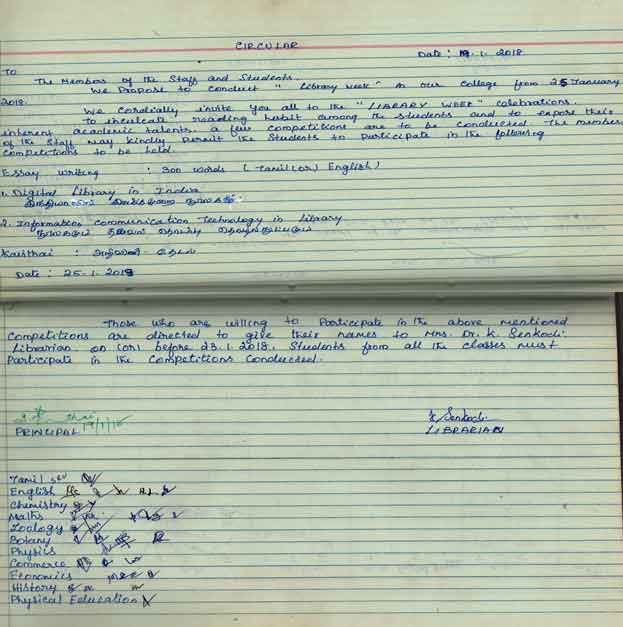 CIRCULAR
Date: 19.1.2018
To
The Members of the Staff and Students.
We Propose to conduct "Library week" in our College from 25 January
2018.
We Cordially invite you all to the "LIBRARY WEEK" celebrations.
To inculcate reading habit among the students and to expose their
inherent academic talents, a few competitions are to be conducted. The members
of the Staff may kindly Permit the Students to Participate in the following
Competitions to be held.
Essay writing : 300 words (Tamil (or) English)
1. Digital Library in India
2. Information Communication Technology in Library
Kavithai :
Date : 25.1.2018
Those who are willing to Participate in the above mentioned
Competitions are directed to give their names to Mrs. Dr. K. Senkodi.
Librarian, on (or) before 23.1.2018. Students from all the classes must
Participate in the Competitions Conducted.
19/1/18
PRINCIPAL
K. Senkodi
LIBRARIAN
Tamil
English
Chemistry
Maths
Zoology
Botany
Physics
Commerce
Economics
History
Physical Education